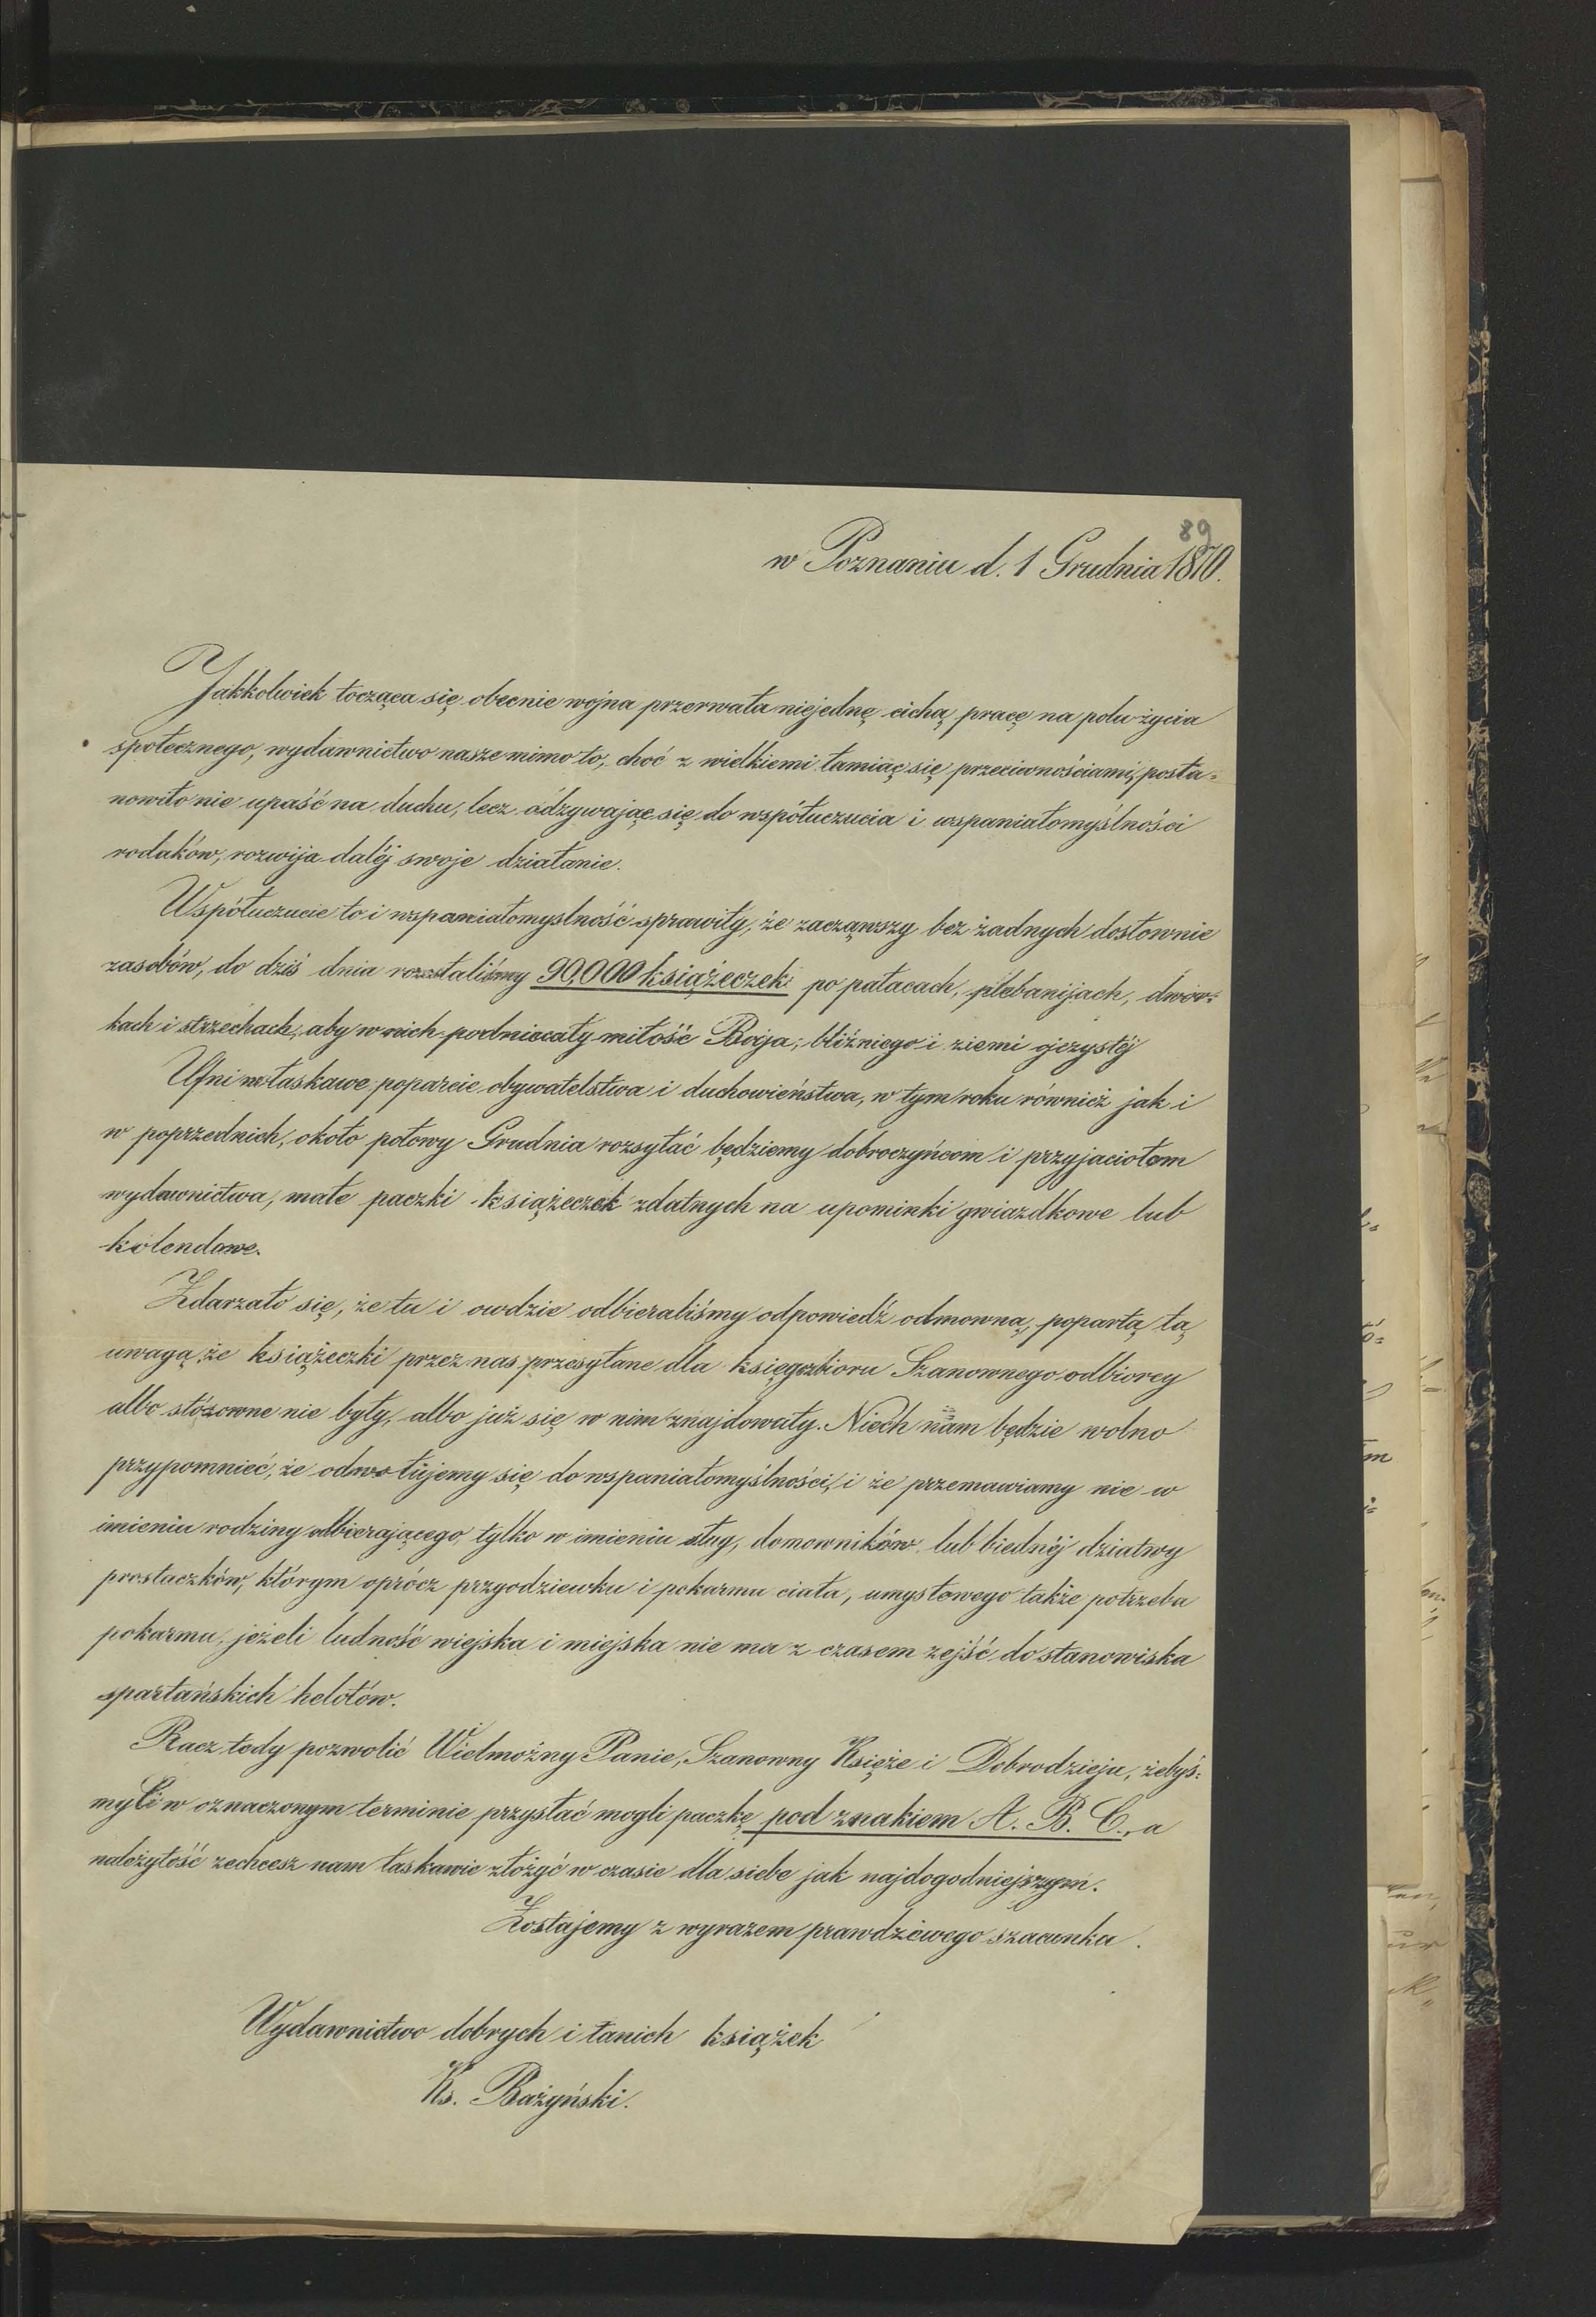 89
w Poznaniu d. 1 Grudnia 1870.
Jakkolwiek tocząca się obecnie wojna przerwała niejednę cichą pracę na polu życia
społecznego, wydawnictwo nasze mimo to, choć z wielkiemi łamiąc się przeciwnościami, posta=
nowiło nie upaść na duchu, lecz odzywając się do współuczucia i wspaniałomyślności
rodaków, rozwija daléj swoje działanie.
Współuczucie to i wspaniałomyslność sprawiły, że zacząwszy bez żadnych dosłownie
zasobów, do dziś dnia rozesłaliśmy 90,000 książeczek po pałacach, plebanijach, dwor=
kach i strzechach, aby w nich podniecały miłość Boga, bliźniego i ziemi ojczystéj
Ufni w łaskawe poparcie obywatelstwa i duchowieństwa, w tym roku również jak i
w poprzednich, około połowy Grudnia rozsyłać będziemy dobroczyńcom i przyjaciołom
wydawnictwa, małe paczki książeczek zdatnych na upominki gwiazdkowe lub
kolendowe.
Zdarzało się, że tu i owdzie odbieraliśmy odpowiedź odmowną, popartą tą
uwagą, że książeczki przez nas przesyłane dla księgozbioru Szanownego odbiorcy
albo stósowne nie były, albo już się w nim znajdowały. Niech nam będzie wolno
przypomnieć, że odwołujemy się do wspaniałomyślności, i że przemawiamy nie w
imieniu rodziny odbierającego, tylko w imieniu sług, domowników lub biednéj dziatwy
prostaczków, którym oprócz przyodziewku i pokarmu ciała, umysłowego także potrzeba
pokarmu, jeżeli ludność wiejska i miejska nie ma z czasem zejść do stanowiska
spartańskich helotów.
Racz tedy pozwolić Wielmożny Panie, Szanowny Księże i Dobrodzieju, żebyś=
my Ci w oznaczonym terminie przysłać mogli paczkę pod znakiem A. B. C., a
należytość zechcesz nam łaskawie złożyć w czasie dla siebie jak najdogodniejszym.
Zostajemy z wyrazem prawdziwego szacunku.
Wydawnictwo dobrych i tanich książek
Ks. Bażyński.